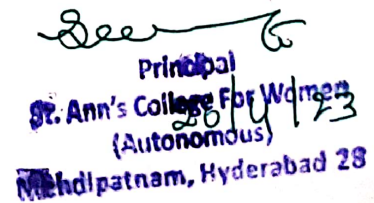 Principal
St. Ann's College For Women
26/4/23
(Autonomous)
Mehdipatnam, Hyderabad 28